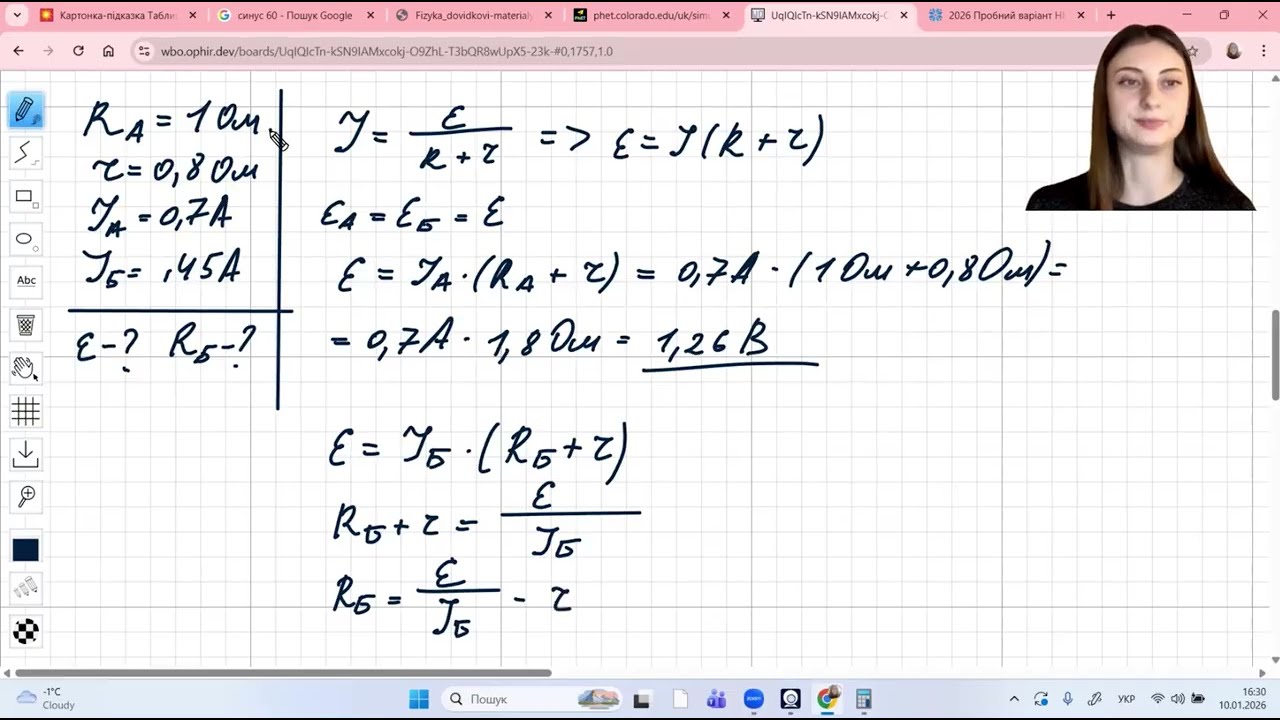 Картонка-підказка Табли
синус 60 - Пошук Google
Fizyka_dovidkovi-materialy
phet.colorado.edu/uk/simu
UqIQIcTn-kSN9IAMxcokj-O
2026 Пробний варіант НМ
wbo.ophir.dev/boards/UqIQIcTn-kSN9IAMxcokj-O9ZhL-T3bQR8wUpX5-23k-#0,1757,1.0
R_A = 1 Ом
r = 0,8 Ом
I_A = 0,7 А
I_Б = ,45 А
ε - ? R_Б - ?
I = ε / (R + r) => ε = I (R + r)
ε_A = ε_Б = ε
ε = I_A · (R_A + r) = 0,7 А · (1 Ом + 0,8 Ом) =
= 0,7 А · 1,8 Ом = 1,26 В
ε = I_Б · (R_Б + r)
R_Б + r = ε / I_Б
R_Б = ε / I_Б - r
Abc
-1°C
Cloudy
Пошук
УКР
16:30
10.01.2026